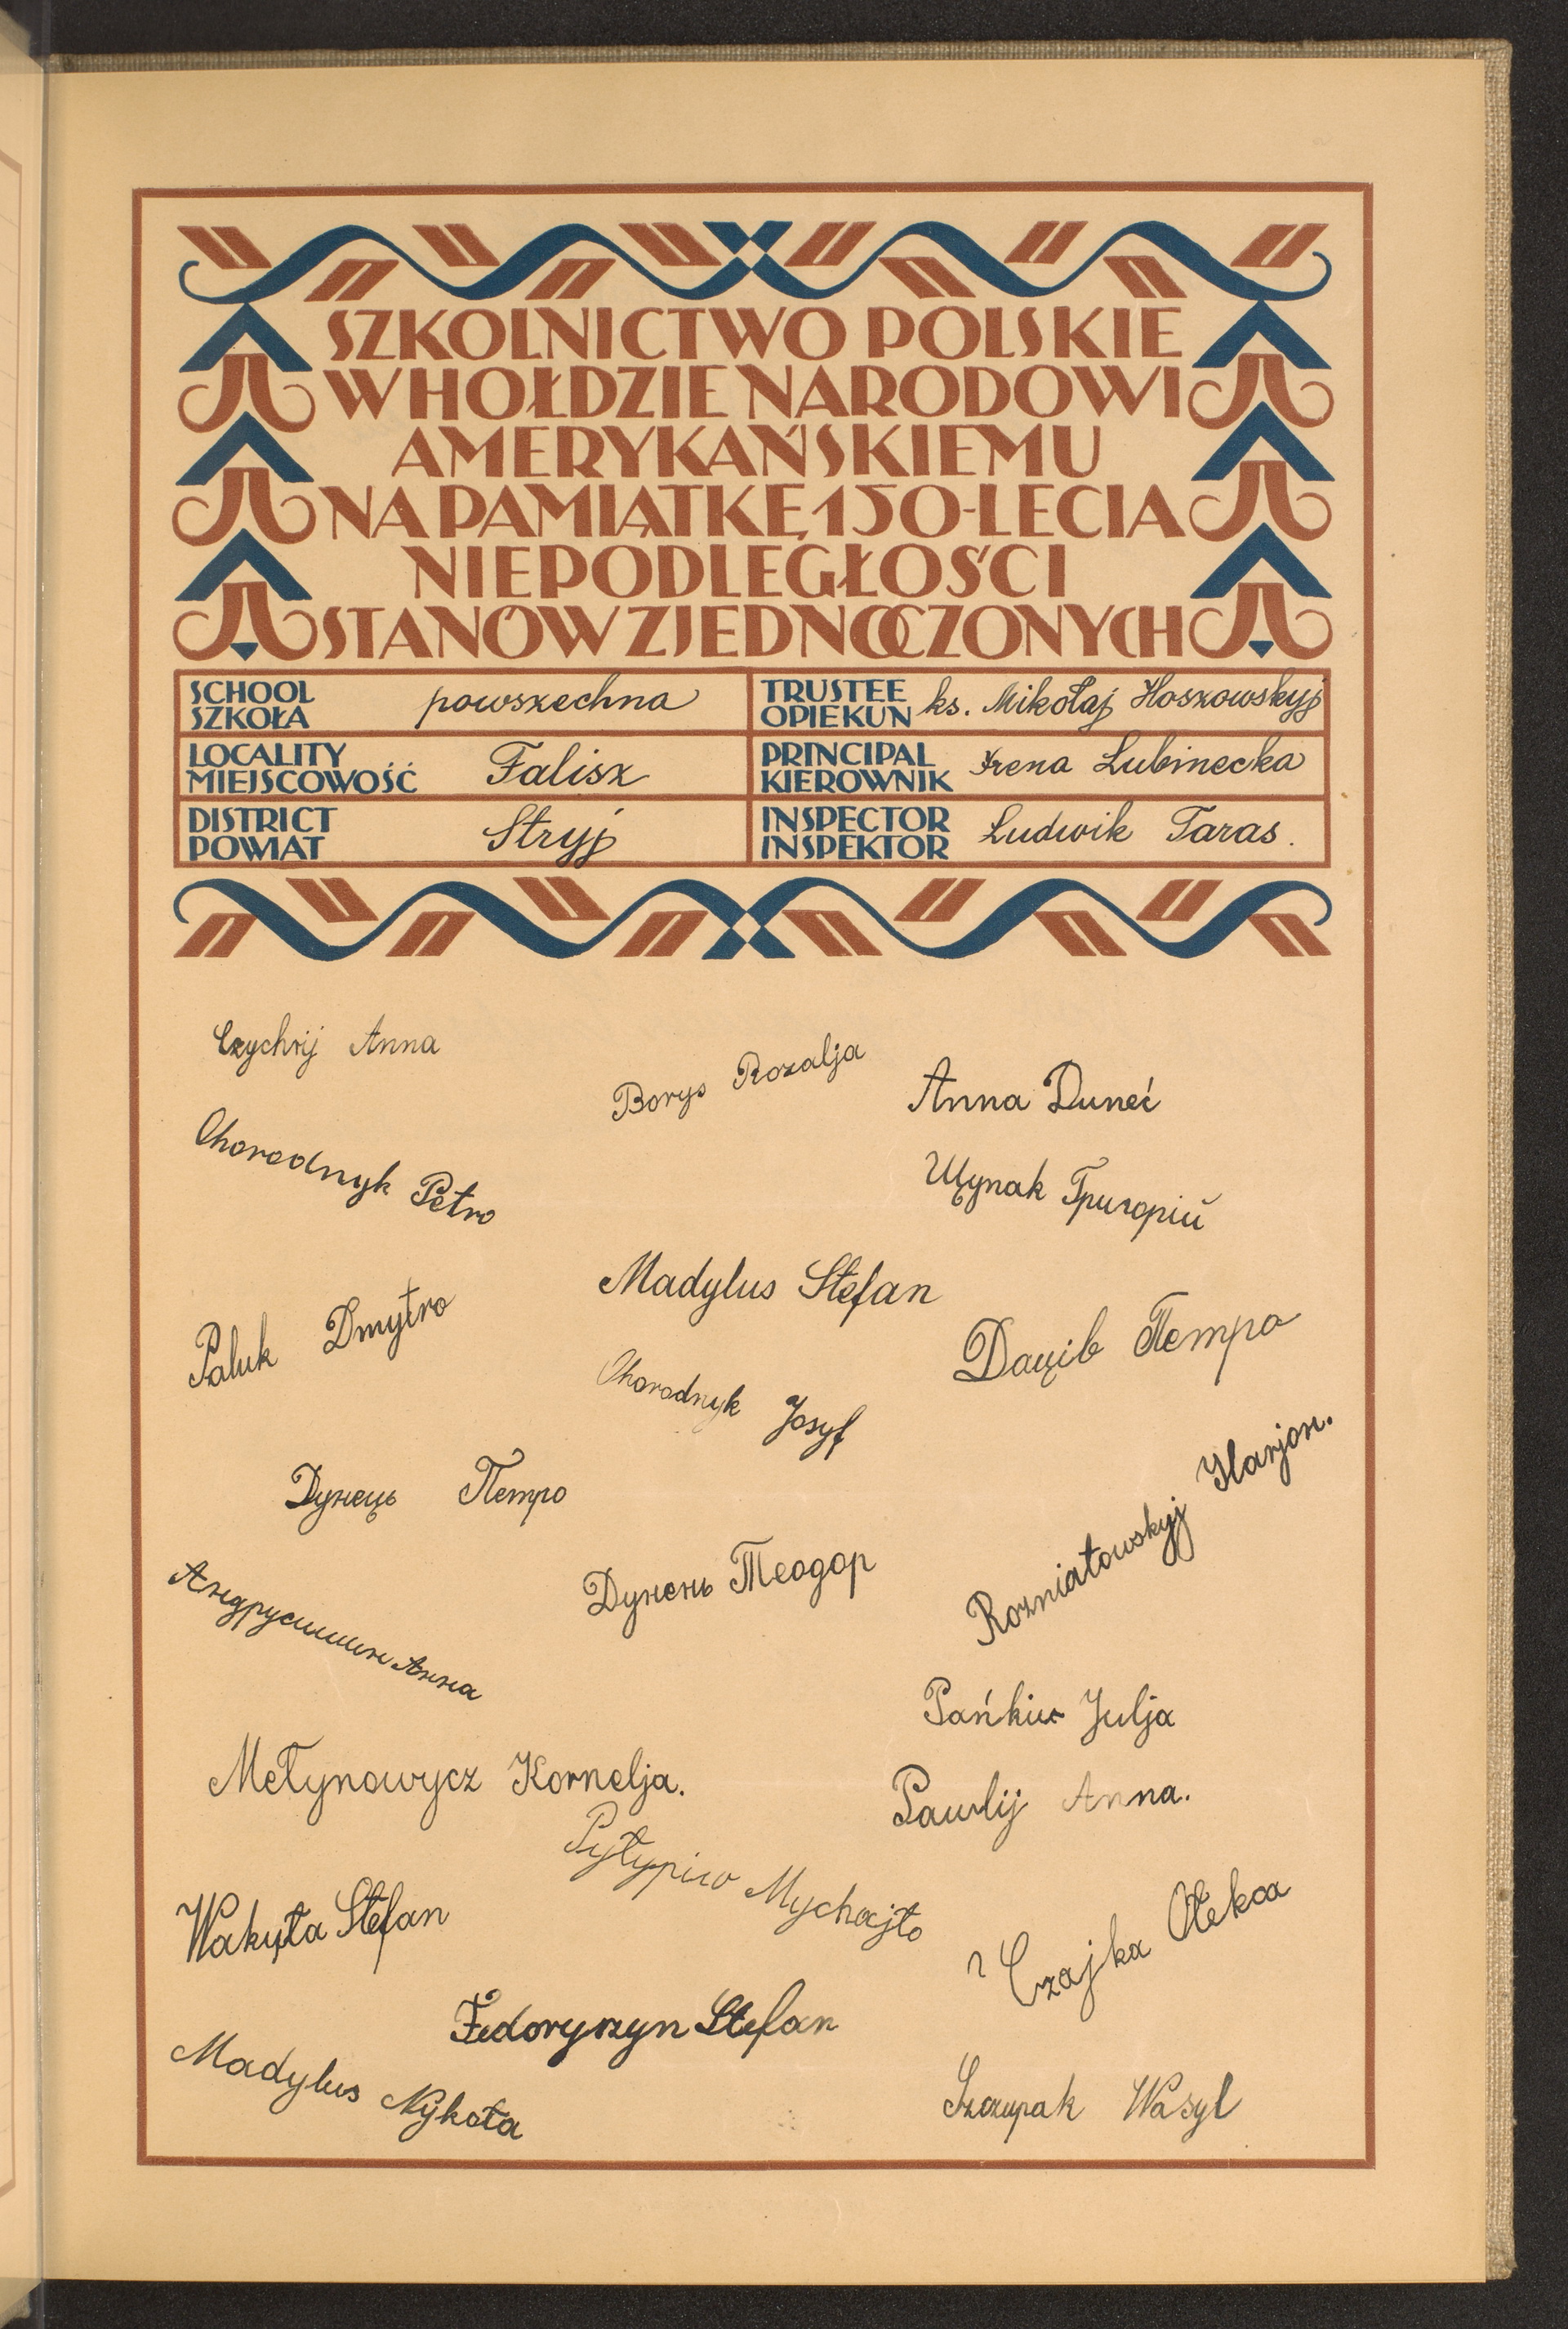 SZKOLNICTWO POLSKIE
W HOŁDZIE NARODOWI
AMERYKAŃSKIEMU
NA PAMIĄTKĘ 150-LECIA
NIEPODLEGŁOŚCI
STANÓW ZJEDNOCZONYCH
SCHOOL
SZKOŁA
powszechna
TRUSTEE
OPIEKUN
ks. Mikołaj Hoszowskyj
LOCALITY
MIEJSCOWOŚĆ
Falisz
PRINCIPAL
KIEROWNIK
Irena Lubinecka
DISTRICT
POWIAT
Stryj
INSPECTOR
INSPEKTOR
Ludwik Taras.
Czychrij Anna
Borys Rozalja
Anna Duneć
Ohorodnyk Petro
Щупак Григорій
Madylus Stefan
Paluk Dmytro
Даців Петро
Ohorodnyk Josyf
Дунець Петро
Rozniatowskyj Ilarjon.
Дунень Теодор
Андрусишин Анна
Pańkiw Julja
Metynowycz Kornelja.
Pawlij Anna.
Pyłypiw Mychajło
Wakyła Stefan
Czajka Ołeksa
Fedoryszyn Stefan
Madylus Nykoła
Szczupak Wasyl